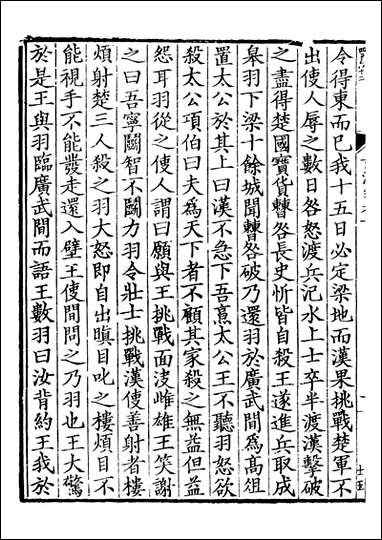 令得東而已我十五日必定梁地而漢果挑戰楚軍不
出使人辱之數日咎怒渡兵汜水上士卒半渡漢擊破
之盡得楚國寶貨𣍘咎長史忻皆自殺王遂進兵取成
皋羽下梁十餘城聞𣍘咎破乃還羽於廣武間爲高俎
置太公於其上曰漢不急下吾烹太公王不聽羽怒欲
殺太公項伯曰夫爲天下者不顧其家殺之無益但益
怨耳羽從之使人謂曰願與王挑戰面決雌雄王笑謝
之曰吾寧鬭智不鬭力羽令壯士挑戰漢使善射者樓
煩射楚三人殺之羽大怒即自出瞋目叱之樓煩目不
能視手不能發走還入壁王使間問之乃羽也王大驚
於是王與羽臨廣武間而語王數羽曰汝背約王我於